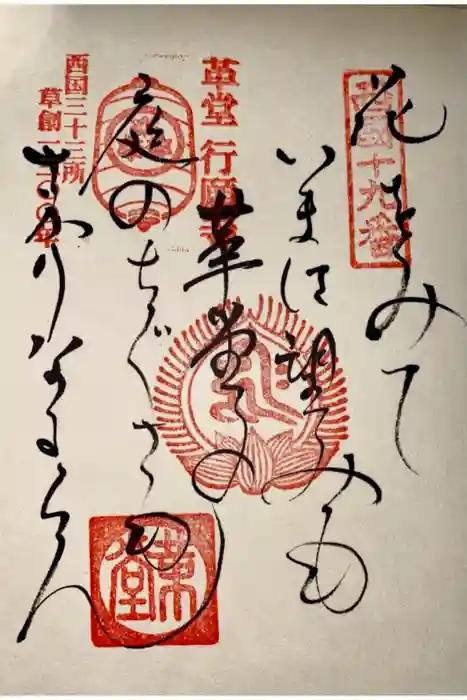 西國十九番
花をみて
いまは望みも
革堂 行願寺
革堂の
庭のちぐさも
西国三十三所
草創一三〇〇年
さかりなるらん
革堂